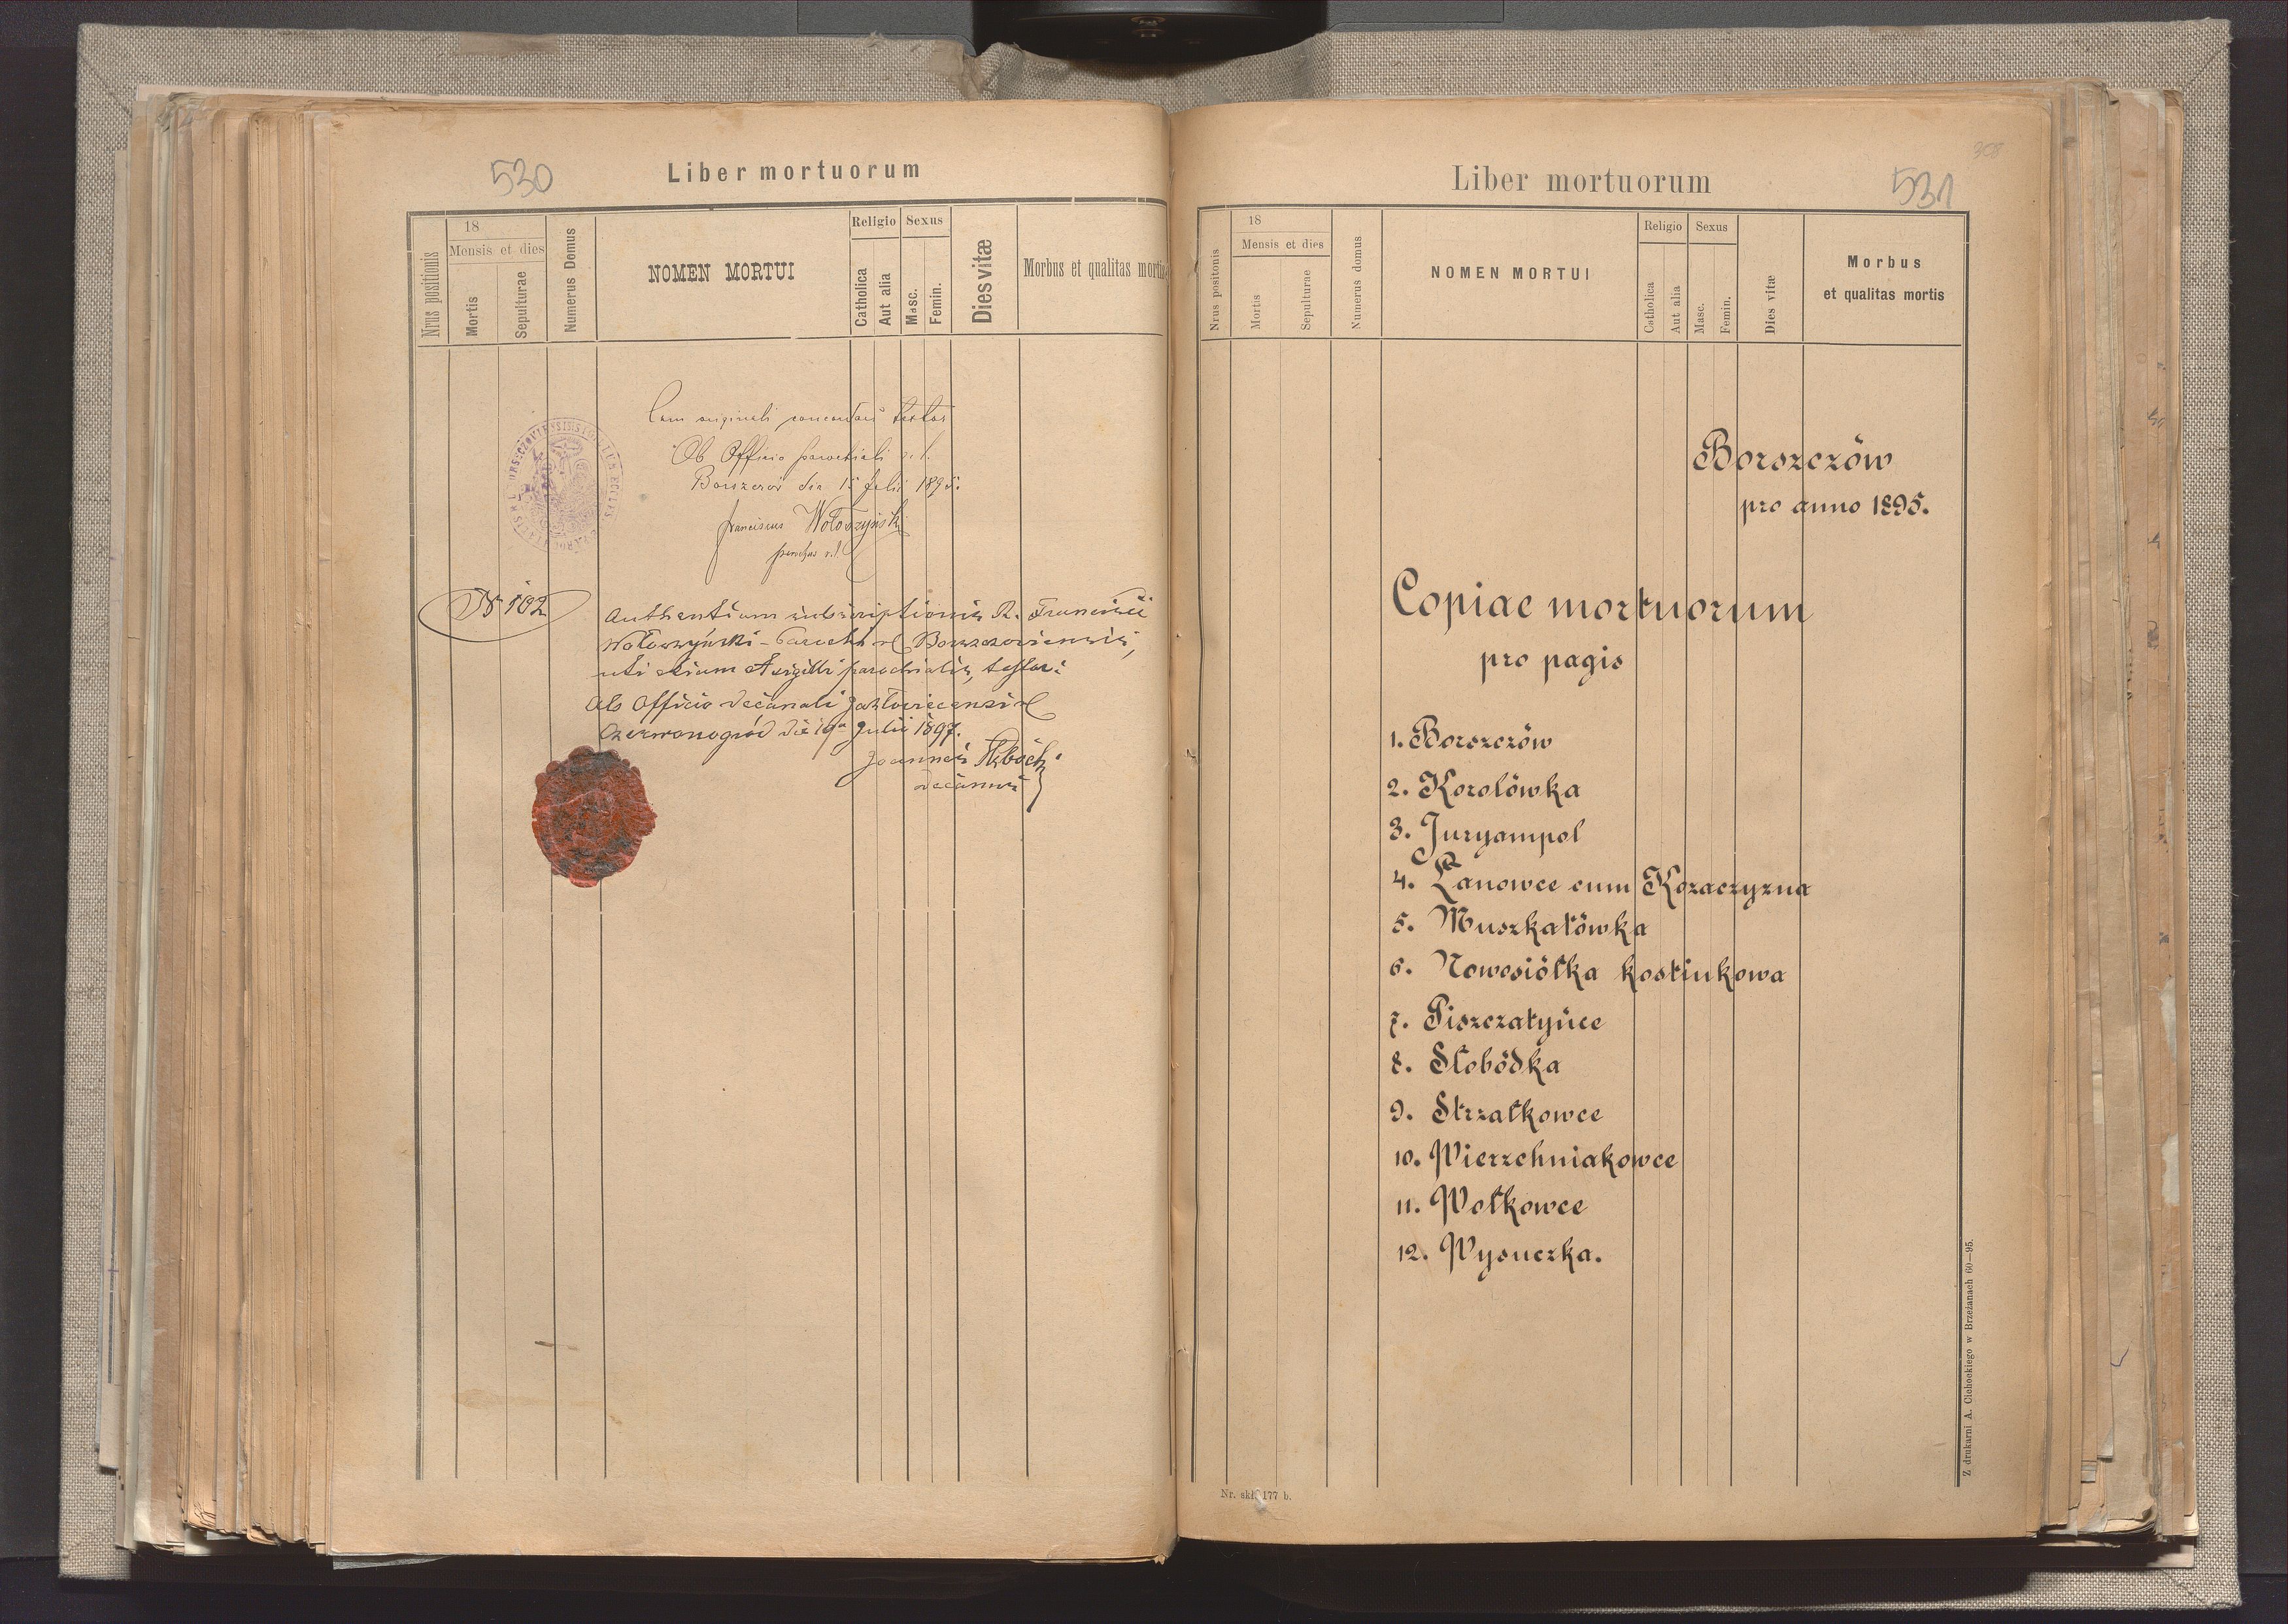 530
Liber mortuorum
Nrus positionis
18
Mensis et dies
Mortis
Sepulturae
Numerus Domus
NOMEN MORTUI
Religio
Catholica
Aut alia
Sexus
Masc.
Femin.
Dies vitæ
Morbus et qualitas mortis
Cum originali concordari testor
Ab Officio parochiali r. l.
Borszczów die 15 Julii
Franciscus Wołoszyński
parochus r. l.
N 102
Authentiam subscriptionis R. Francisci
Wołoszyński - Parochi rl Borszczoviensis,
uti etiam et sigilli parochialis, testor:
Ab Officio decanali Jazłoviecensi rl
Czerwonogród die 19a Julii 1897.
Joannes
decanus
308
531
Liber mortuorum
Nrus positonis
18
Mensis et dies
Mortis
Sepulturae
Numerus domus
NOMEN MORTUI
Religio
Catholica
Aut alia
Sexus
Masc.
Femin.
Dies vitæ
Morbus
et qualitas mortis
Borszczów
pro anno 1895.
Copiae mortuorum
pro pagis
1. Borszczów
2. Korolówka
3. Juryampol
4. Łanowce cum Kozaczyzna
5. Muszkatówka
6. Nowosiółka kostiukowa
7. Piszczatyńce
8. Słobódka
9. Strzałkowce
10. Wierzchniakowce
11. Wołkowce
12. Wysuczka.
Z drukarni A. Cichockiego w Brzeżanach 60—95.
Nr. skł. 177 b.